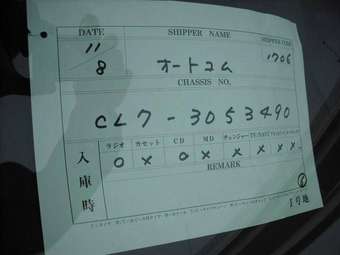 DATE SHIPPER NAME SHIPPER CODE
11/8 オートコム 1706
CHASSIS NO.
CL7-3053490
入庫時
ラジオ カセット CD MD チェンジャー TV・NAVI
O × O × × × × ×
REMARK
1号地